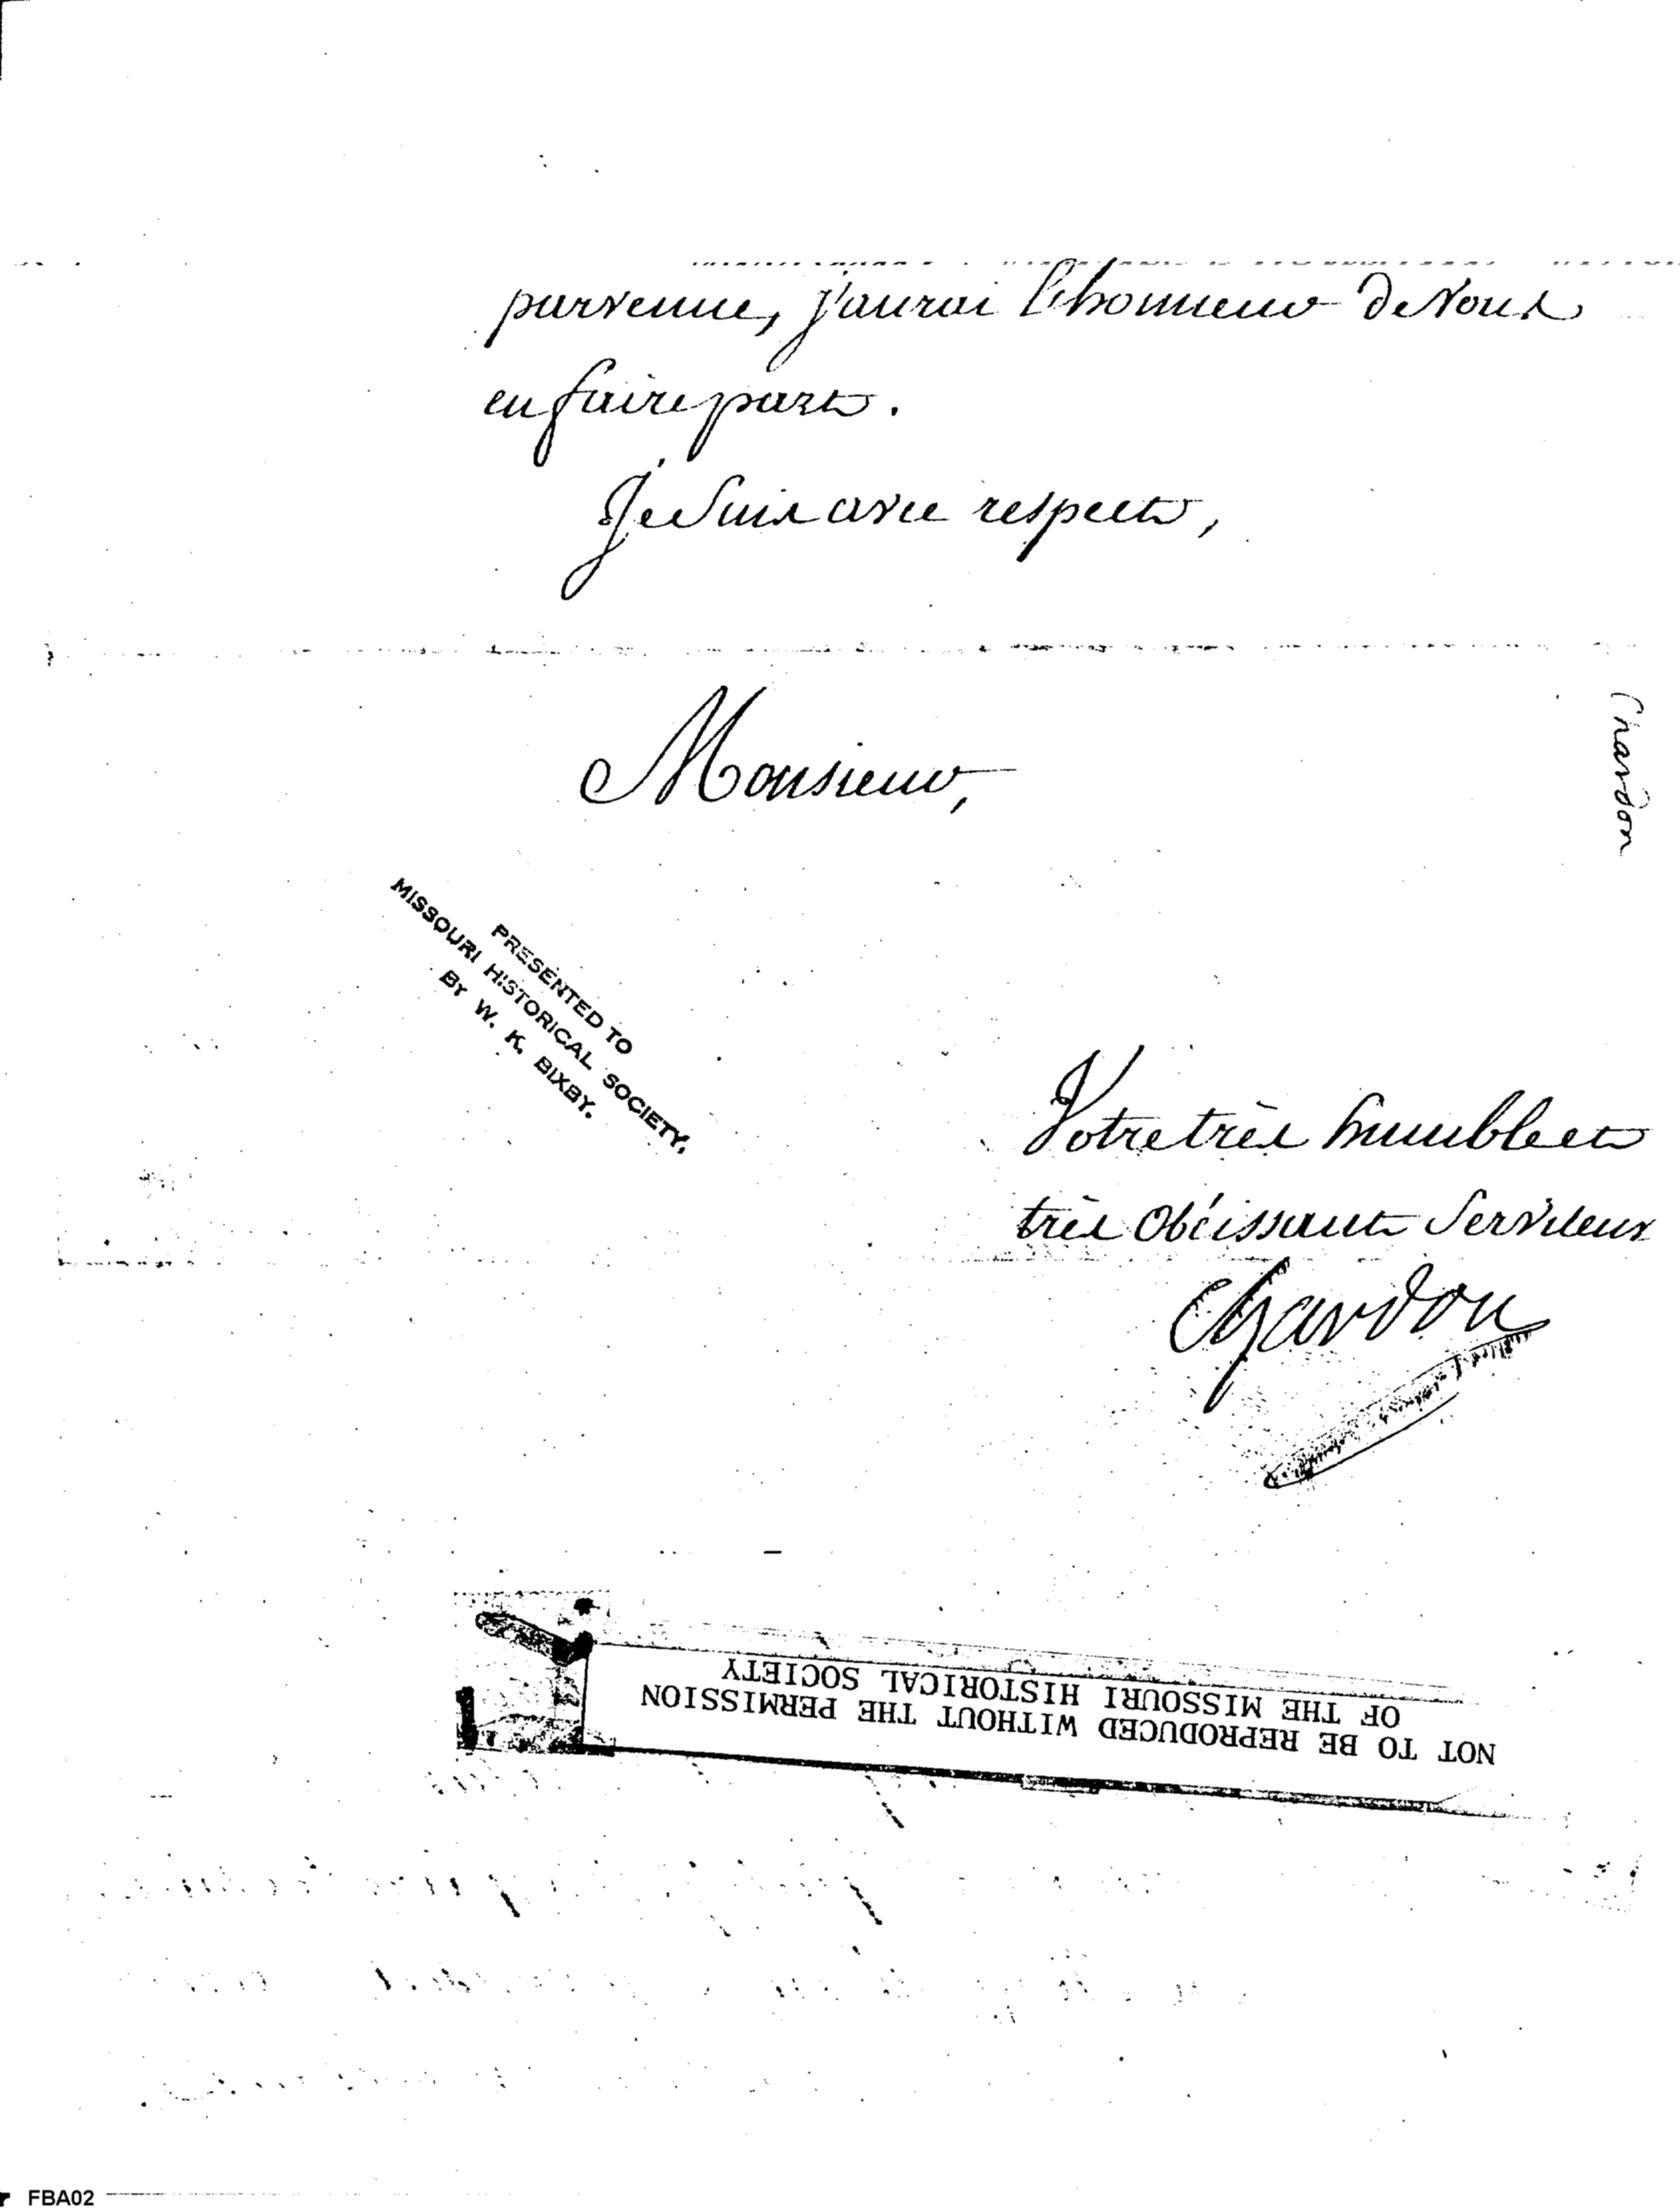 parvenue, j'aurai l'honneur de vous
en faire part.
Je suis avec respect,
Monsieur,
Chardon
PRESENTED TO
MISSOURI HISTORICAL SOCIETY,
BY W. K. BIXBY.
Votre très humble et
très obéissant Serviteur
Chardon
NOT TO BE REPRODUCED WITHOUT THE PERMISSION
OF THE MISSOURI HISTORICAL SOCIETY
FBA02